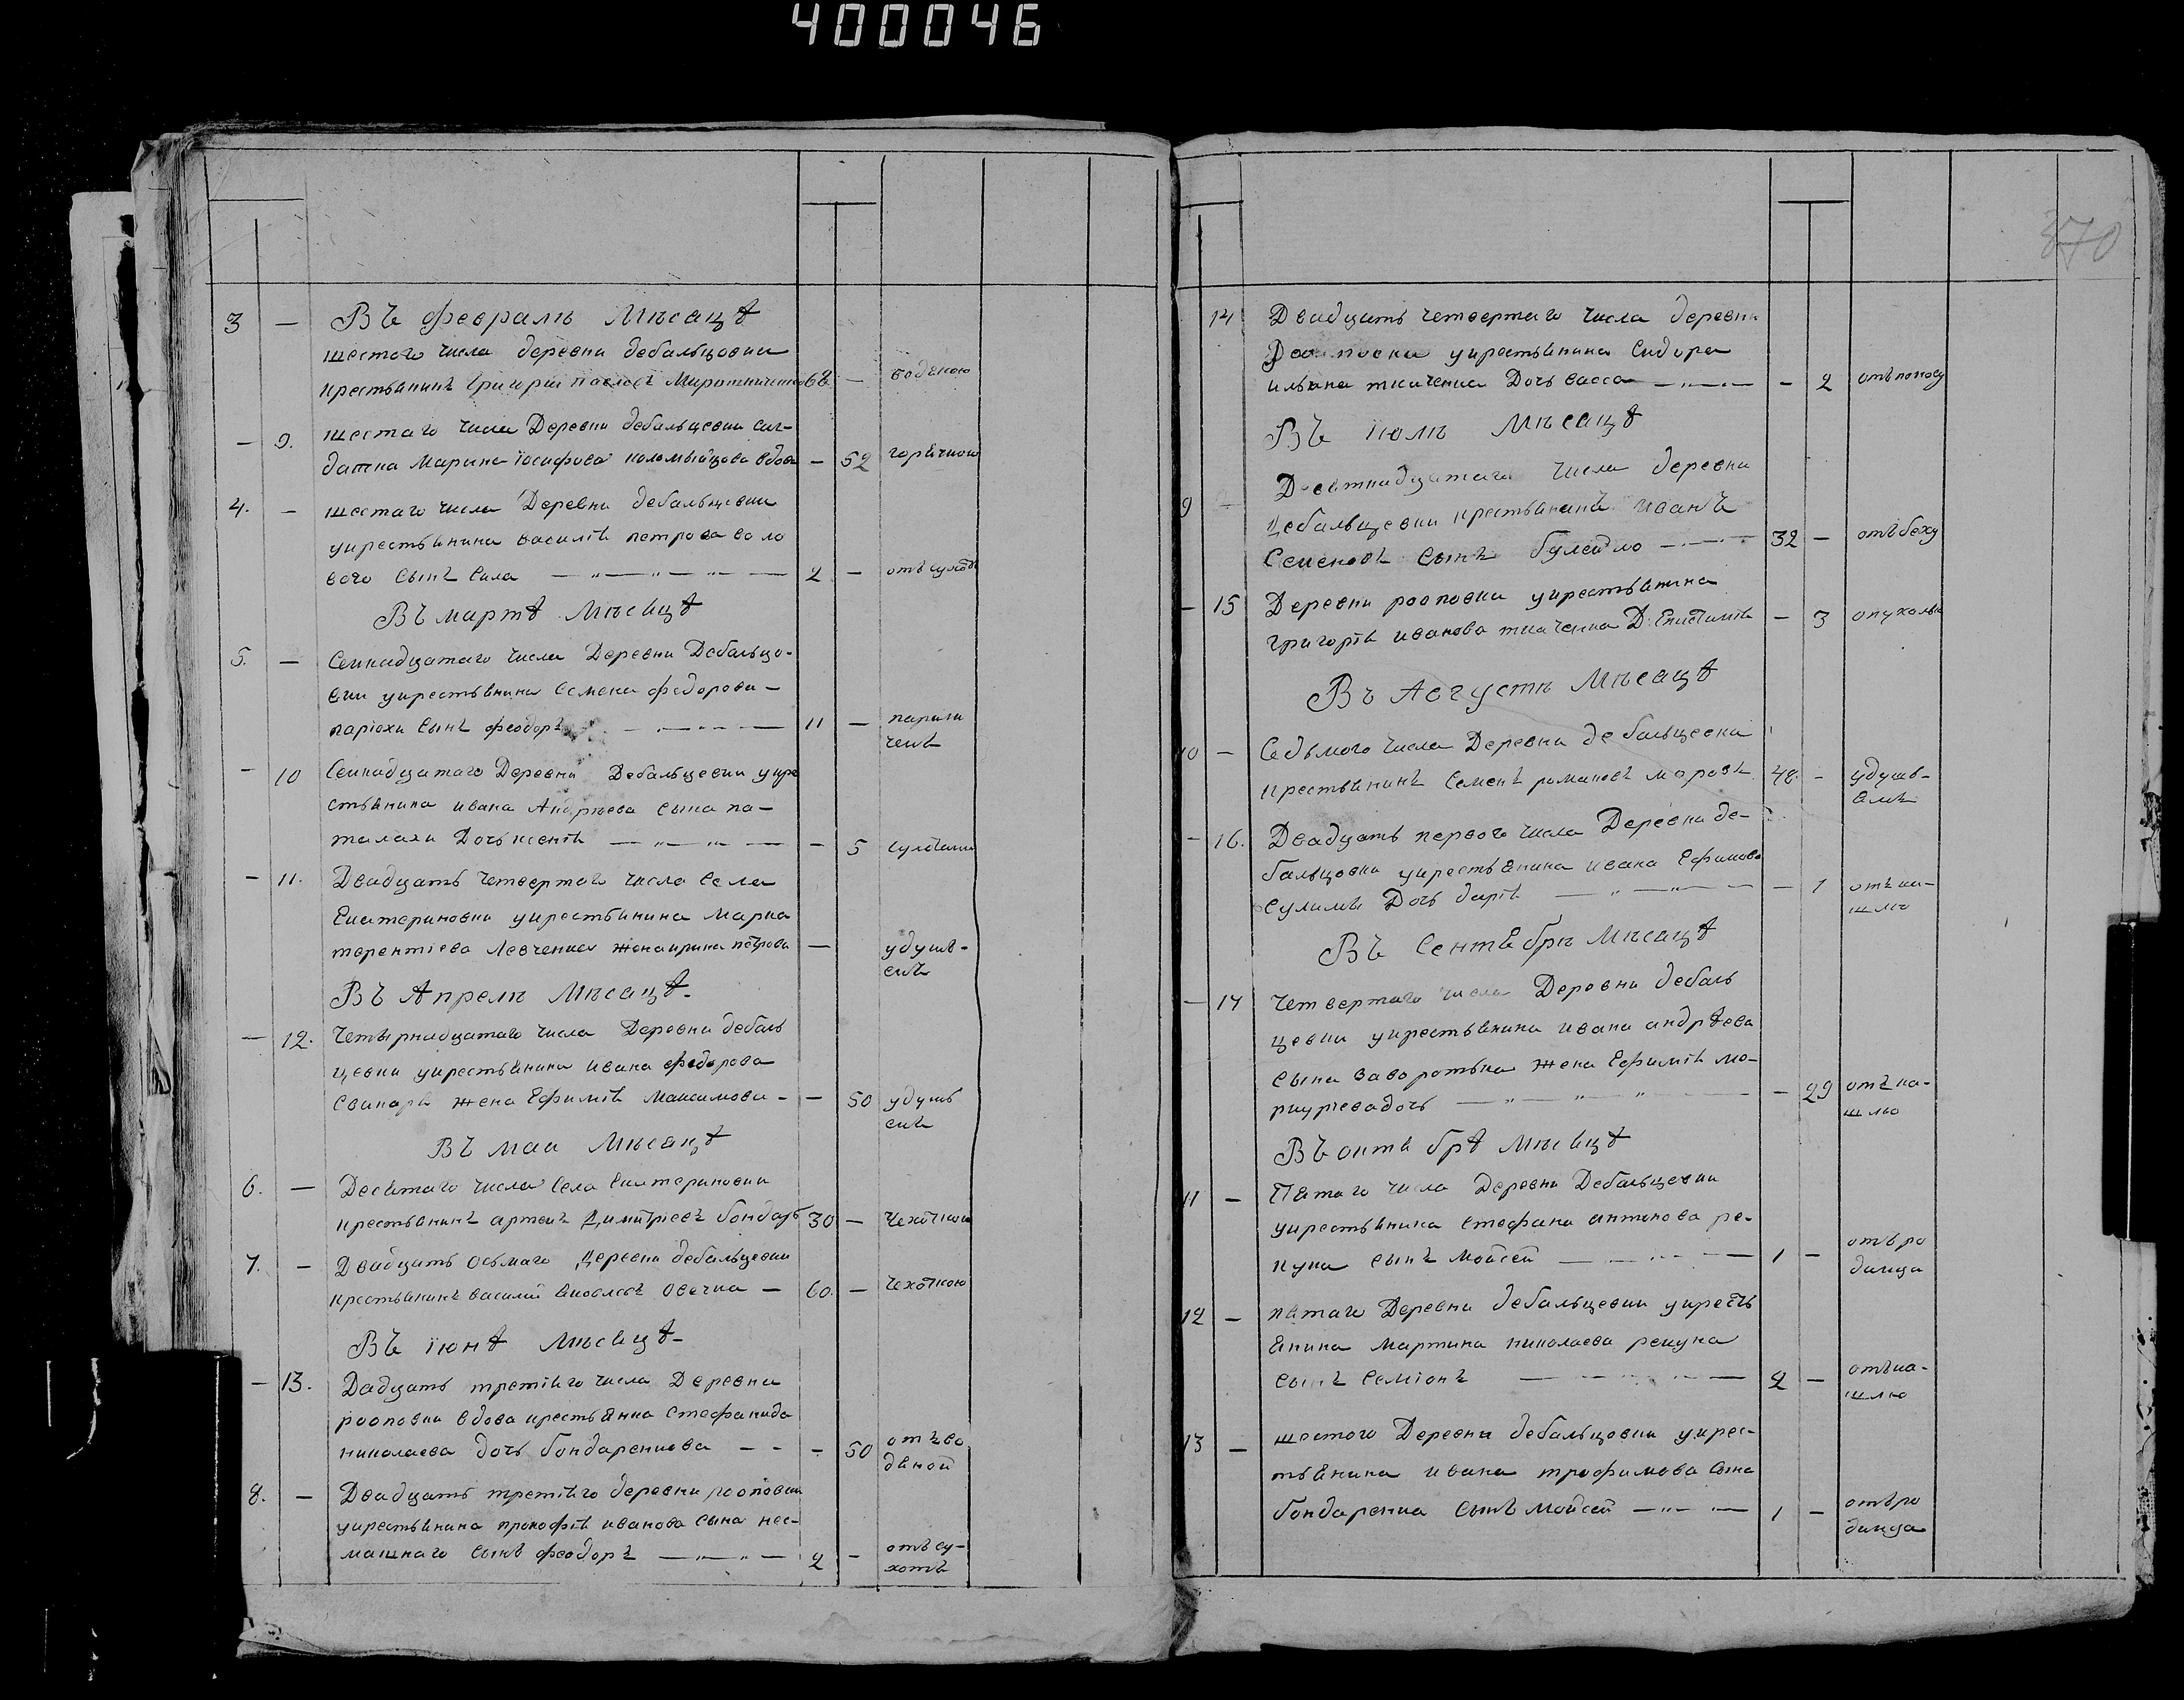 400046
370
3 — Въ февралѣ Мѣсацѣ
шестого числа деревни дебальцовки
крестьянинъ Григорий павловъ Мирошниченко 68 — водяною
— 9. шестаго числа Деревни дебальцевки сол-
датка Марина Іосифова коломыйцова вдова — 52 горячкою
4. — шестаго числа Деревни дебальцевки
укрестьянина василія петрова воло
вого сынъ сила — „ — „ — „ — 2 — отъ сухотъ
Въ мартѣ Мѣсяцѣ
5. — Семнадцатаго числа Деревни Дебальцо-
вки укрестьянина Семена федорова —
паріохи сынъ феодоръ — „ — 11 — парали
чемъ
— 10 Семнадцатаго Деревни Дебальцевки укре
стьянина ивана Андрѣева сына па-
талахи Дочь ксенія — „ — „ — — 5 сухотами
— 11. Двадцать четвертаго числа села
Екатериновки укрестьянина Марка
терентіева Левченка жена ирина петрова — удушь-
емъ
Въ Апрелѣ Мѣсацѣ
— 12. Четырнадцатаго числа Деревни дебаль
цевки укрестьянина ивана федорова
свинаря жена Ефимія Максимова — — 50 удушь
емъ
Въ маи Мѣсяцѣ
6. — Десятаго числа Села Екатериновки
крестьянинъ артемъ Димитріевъ бондарь 30 — чехоткою
7. — Двадцать осьмаго Деревни дебальцевки
крестьянинъ василий яковлевъ овечка — 60. — чехоткою
Въ іюнѣ Мѣсяцѣ
— 13. Дадцать третяго числа Деревни
рооповки вдова крестьянка Стефанида
николаева дочь бондаренкова — — — 50 отъ во
дяной
8. — Двадцать третяго деревни рооповки
укрестьянина прокофія иванова сына нес-
машнаго сынъ феодоръ — „ — „ — 2 — отъ су-
хотъ
14 Двадцать четвертаго числа деревни
укрестьянина Сидора
ильина ткаченка Дочь васса — „ — — 2 отъ поносу
Въ іюлѣ Мѣсацѣ
9 — Девятнадцатаго числа деревни
Дебальцевки крестьянинъ иванъ
Семеновъ сынъ — „ — 32 — отъ беху
— 15 Деревни рооповки укрестьянина
григорія иванова ткаченка Д: Епистимія — 3 опухолью
Въ Августѣ Мѣсацѣ
10 — Седьмого числа Деревни дебальцевки
крестьянинъ Семенъ романовъ морозъ 48. — удушь-
емъ
— 16. Двадцать первого числа Деревни де-
бальцовки укрестьянина ивана Ефимова
сулимы Дочь дарія — „ — „ — — 1 отъ ка-
шлю
Въ Сентябрѣ Мѣсацѣ
— 17 Четвертаго числа Деревни дебаль
цевки укрестьянина ивана андрѣева
сына заворотька жена Ефимія мо-
ркуріевадочь — „ — „ — „ — — 29 отъ ка-
шлю
Въ октябрѣ Мѣсяцѣ
11 — Пятаго числа Деревни Дебальцевки
укрестьянина стефана антонова ре-
куна сынъ Мойсей — „ — 1 — отъ ро
димца
12 — пятаго Деревни дебальцевки укресть
янина Мартина николаева рекуна
сынъ Семіонъ — „ — „ — 2 — отъ ка-
шлю
13 — шестого Деревни дебальцовки укрес-
тьянина ивана трофимова сына
бондаренка сынъ мойсей — „ — 1 — отъ ро
димца